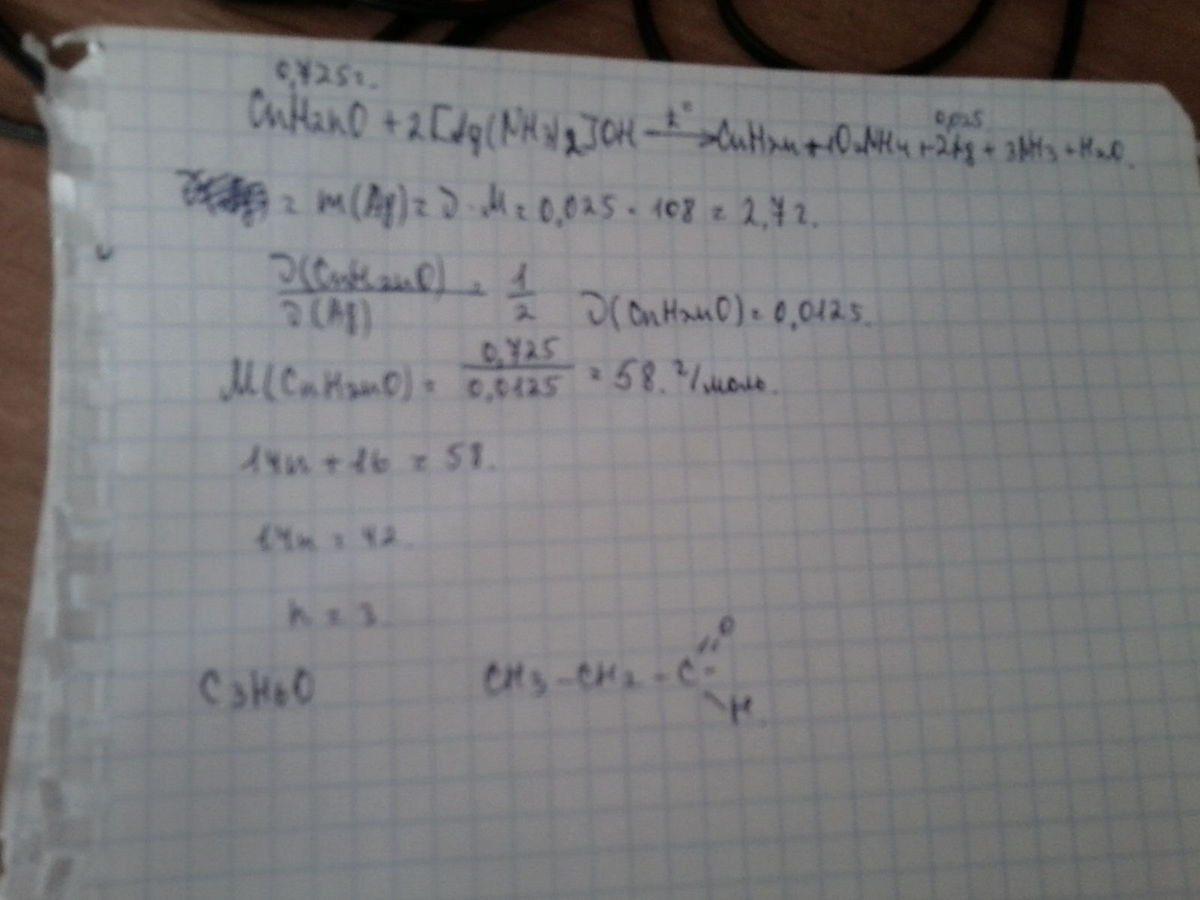 0,725г.
CnH2nO + 2[Ag(NH3)2]OH —t°→ CnH2n-1O2NH4 + 2Ag + 3NH3 + H2O.
0,025
= m(Ag) = ν · M = 0,025 · 108 = 2,7г.
ν(CnH2nO) / ν(Ag) = 1/2 ν(CnH2nO) = 0,0125.
M(CnH2nO) = 0,725 / 0,0125 = 58. г/моль.
14n + 16 = 58.
14n = 42
n = 3
C3H6O CH3 - CH2 - C
O
H